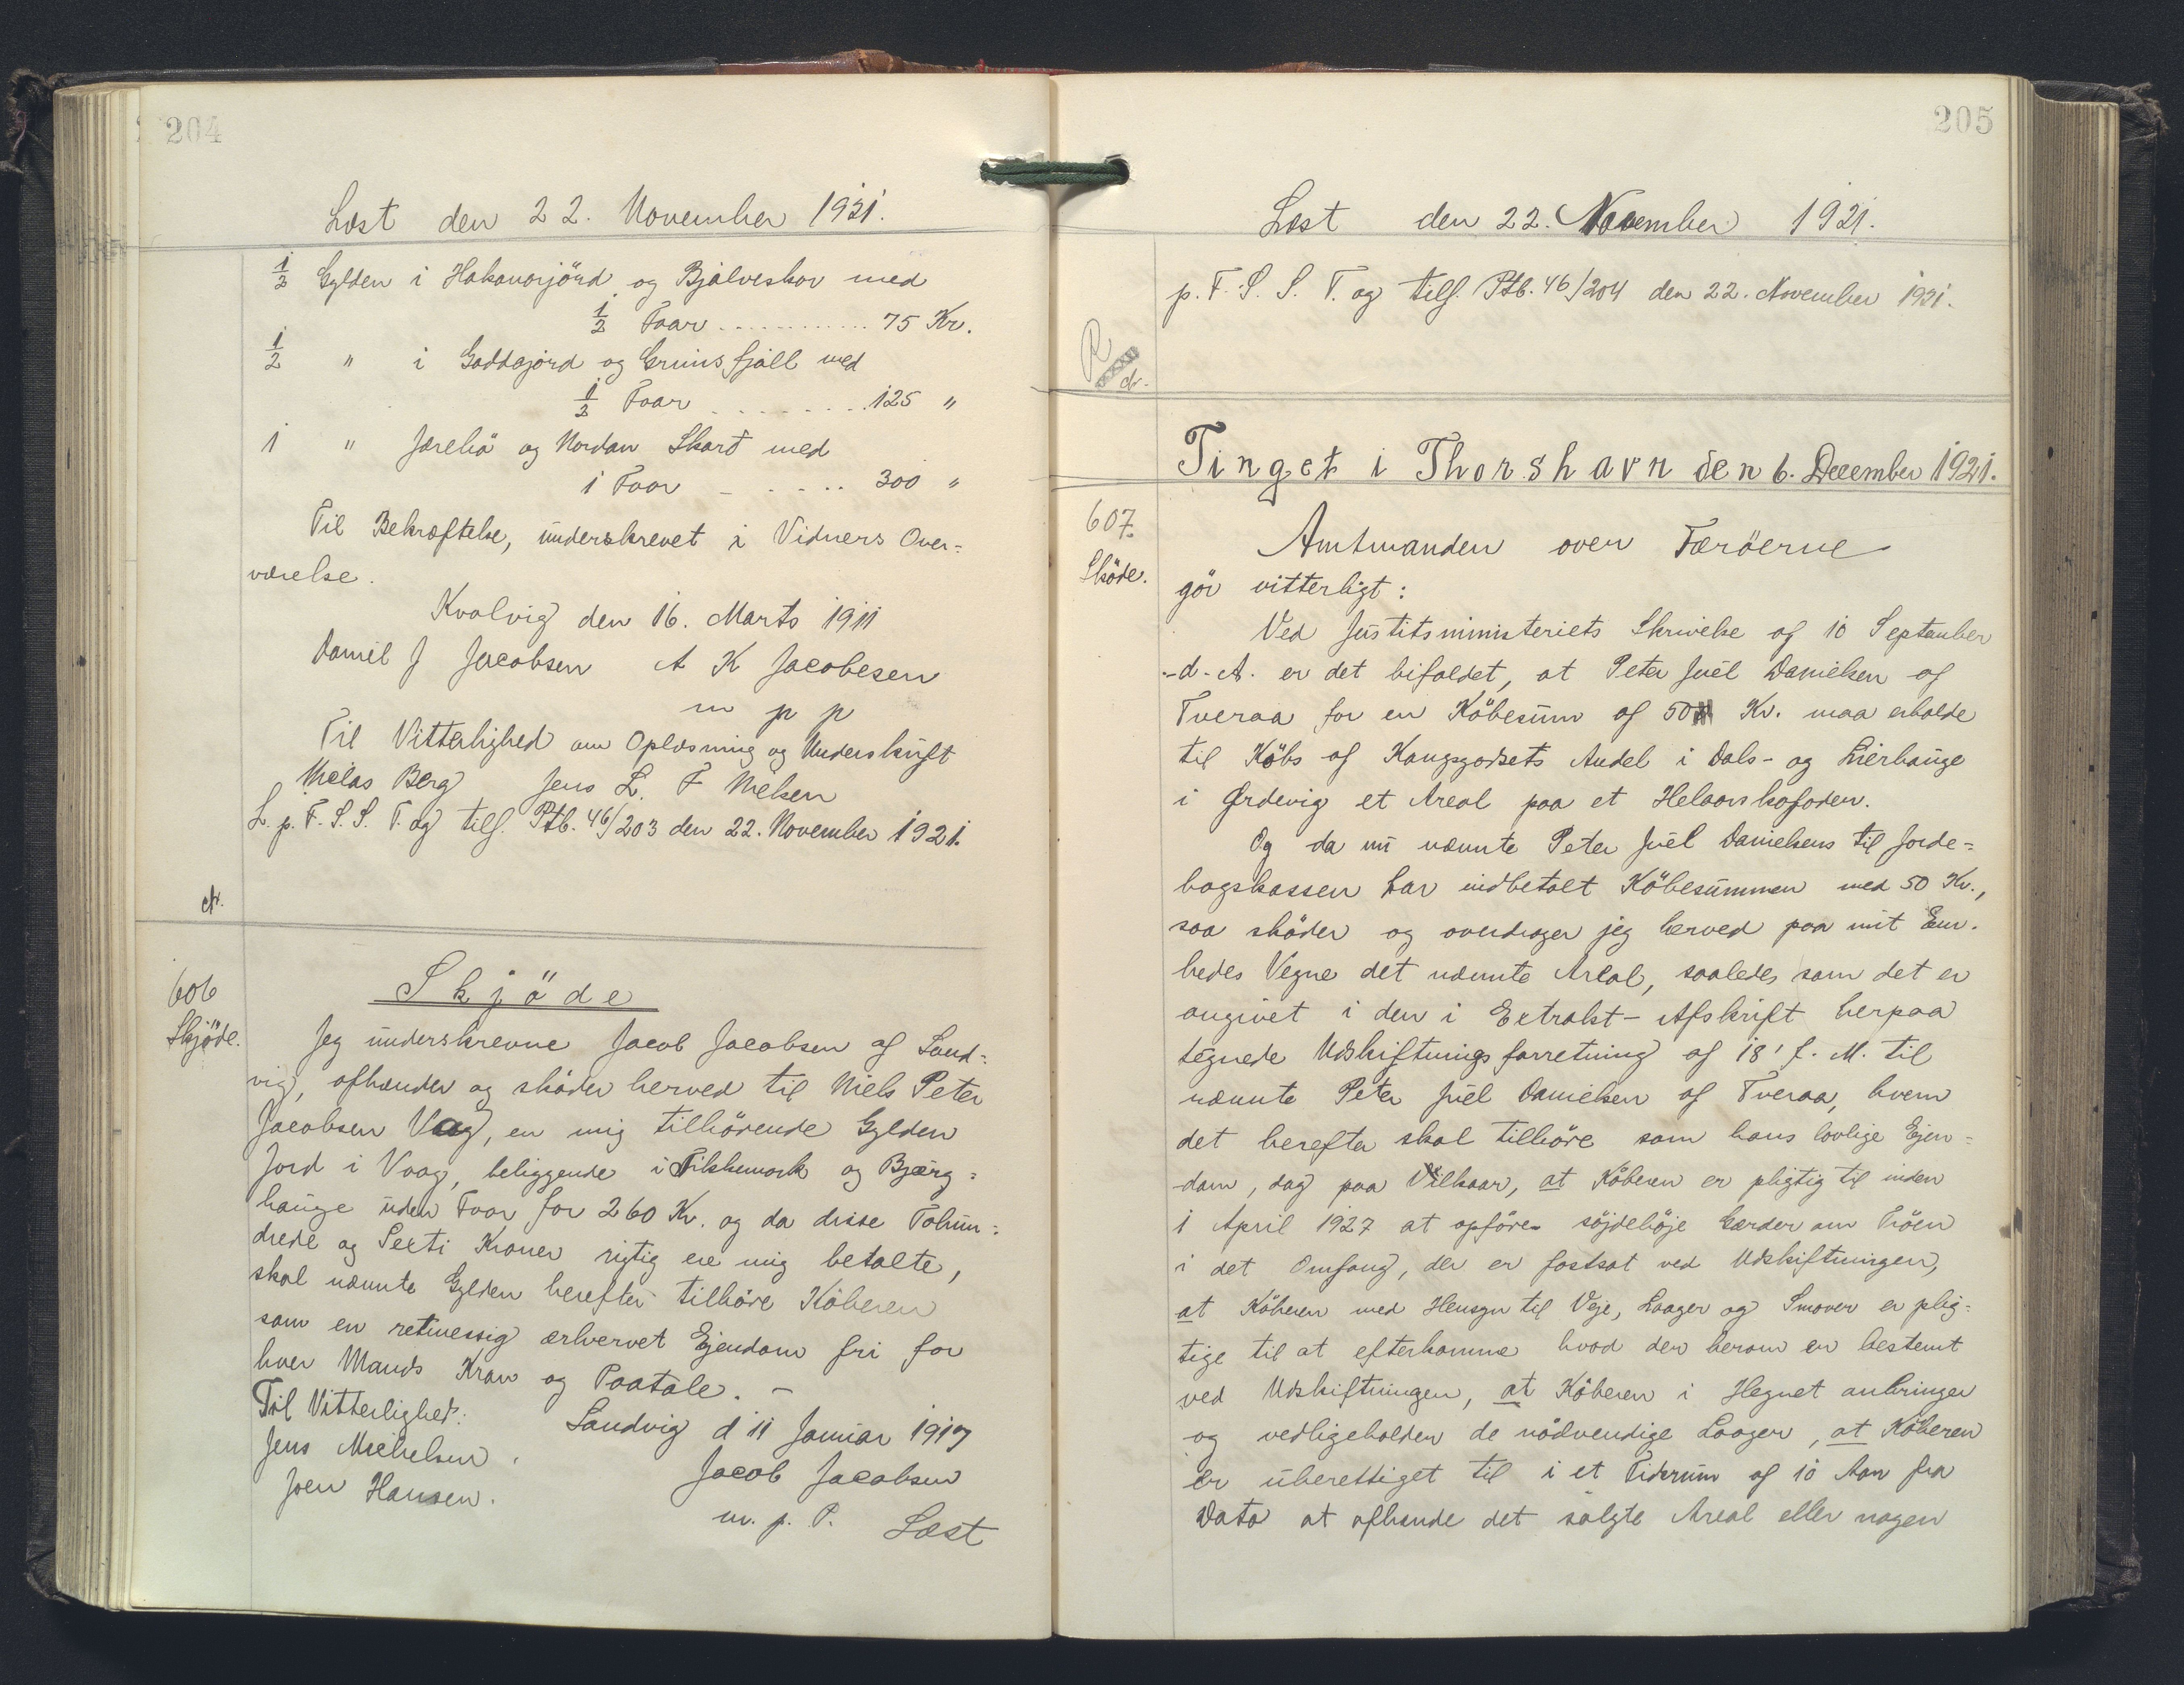 204
Læst den 22. November 1921.
1/2 Gylden i Hakanorjörd og Bjálveskov med
1/2 Foar ........... 75 Kr.
1/2 " i Gaddajörd og Grunsfjall med
1/2 Foar ........ 125 "
1 " Jæreliö og Nordan Skard med
1 Foar - ..... 300 "
Til Bekræftelse, underskrevet i Vidners Over-
værelse.
Kvalvig den 16. Marts 1911
Daniel J Jacobsen A K Jacobesen
m p p
Til Vitterlighed om Oplæsning og Underskrift
Nielas Berg Jens L. F Nielsen
L. p. F. S. S. T. og tilf. Ptb. 46/203 den 22. November 1921.
606
Skjöde.
Skjöde
Jeg underskrevne Jacob Jacobsen af Sand-
vig, afhænder og sköder herved til Niels Peter
Jacobsen Vaag, en mig tilhörende Gylden
Jord i Vaag, beliggende i Filskemark og Bjærg-
hauge uden Foar for 260 Kr. og da disse Tohun-
drede og Sexti Kroner rigtig ere mig betalte,
skal nævnte Gylden herefter tilhöre Köberen
som en retmessig ærhvervet Ejendom fri for
hver Mands Krav og Paatale. -
Til Vitterlighed: Sandvig d 11 Januar 1917
Jens Michelsen. Jacob Jacobsen
Joen Hansen. m. p. P. Læst
205
Læst den 22. November 1921.
p. F. S. S. T. og tilf. Ptb. 46/204 den 22. November 1921.
R
Tinget i Thorshavn den 6. December 1921.
607.
Sköde.
Amtmanden over Færöerne
gör vitterligt:
Ved Justitsministeriets Skrivelse af 10 September
-d. A. er det bifaldet, at Peter Juel Danielsen af
Tveraa for en Köbesum af 50 Kr. maa erholde
til Köbs af Kongsgodsets Andel i Dals- og Lierhauge
i Ørdevig et Areal paa et Helaarskofoder.
Og da nu nævnte Peter Juel Danielsens til Jorde-
bogskassen har indbetalt Köbesummen med 50 Kr.,
saa sköder og overdrager jeg herved paa mit Em-
bedes Vegne det nævnte Areal, saaledes som det er
angivet i den i Extrakt-Afskrift herpaa
tegnede Udskiftningsforretning af 18' f. M. til
nævnte Peter Juel Danielsen af Tveraa, hvem
det herefter skal tilhöre som hans lovlige Ejen-
dom, dog paa Vilkaar, at Köberen er pligtig til inden
1 April 1927 at opföre söjdehöje Gærder om Tröen
i det Omfang, der er fastsat ved Udskiftningen,
at Köberen med Hensyn til Veje, Laager og Smover er plig-
tige til at efterkomme hvad der herom er bestemt
ved Udskiftningen, at Köberen i Hegnet anbringer
og vedligeholder de nödvendige Laager, at Köberen
er uberettiget til i et Tidsrum af 10 Aar fra
Dato at afhænde det solgte Areal eller nogen